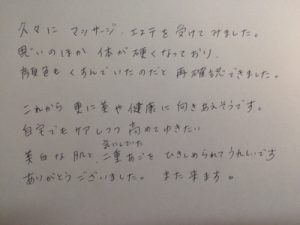 久々に マッサージ、エステを受けてみました。
思いのほか 体が硬くなっており、
顔色も くすんでいたのだと 再確認できました。
これから 更に美や健康に向きあえそうです。
自宅でも ケアしつつ 高めてゆきたい
気にしていた
美白な肌と 二重あごを ひきしめられてうれしいです
ありがとうございました。 また来ます。